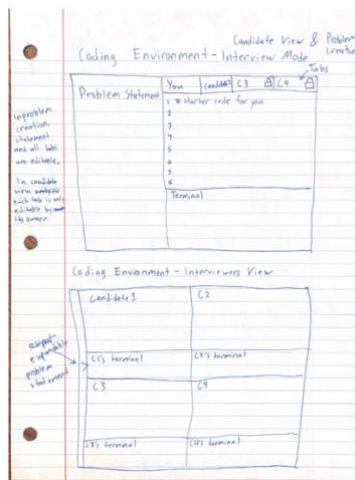 Candidate View & Problem
Creation
Coding Environment - Interview Mode
Tabs
Problem Statement
You
Candidate2
C3
C4
1 # Starter code for you
2
3
4
5
6
7
8
Terminal
In problem
creation,
statement
and all tabs
are editable,
In candidate
view
each tab is only
editable by
its owner
Coding Environment - Interviewers View
Candidate 1
C2
C1's terminal
C2's terminal
expandable
problem
statement
C3
C4
C3's terminal
C4's terminal